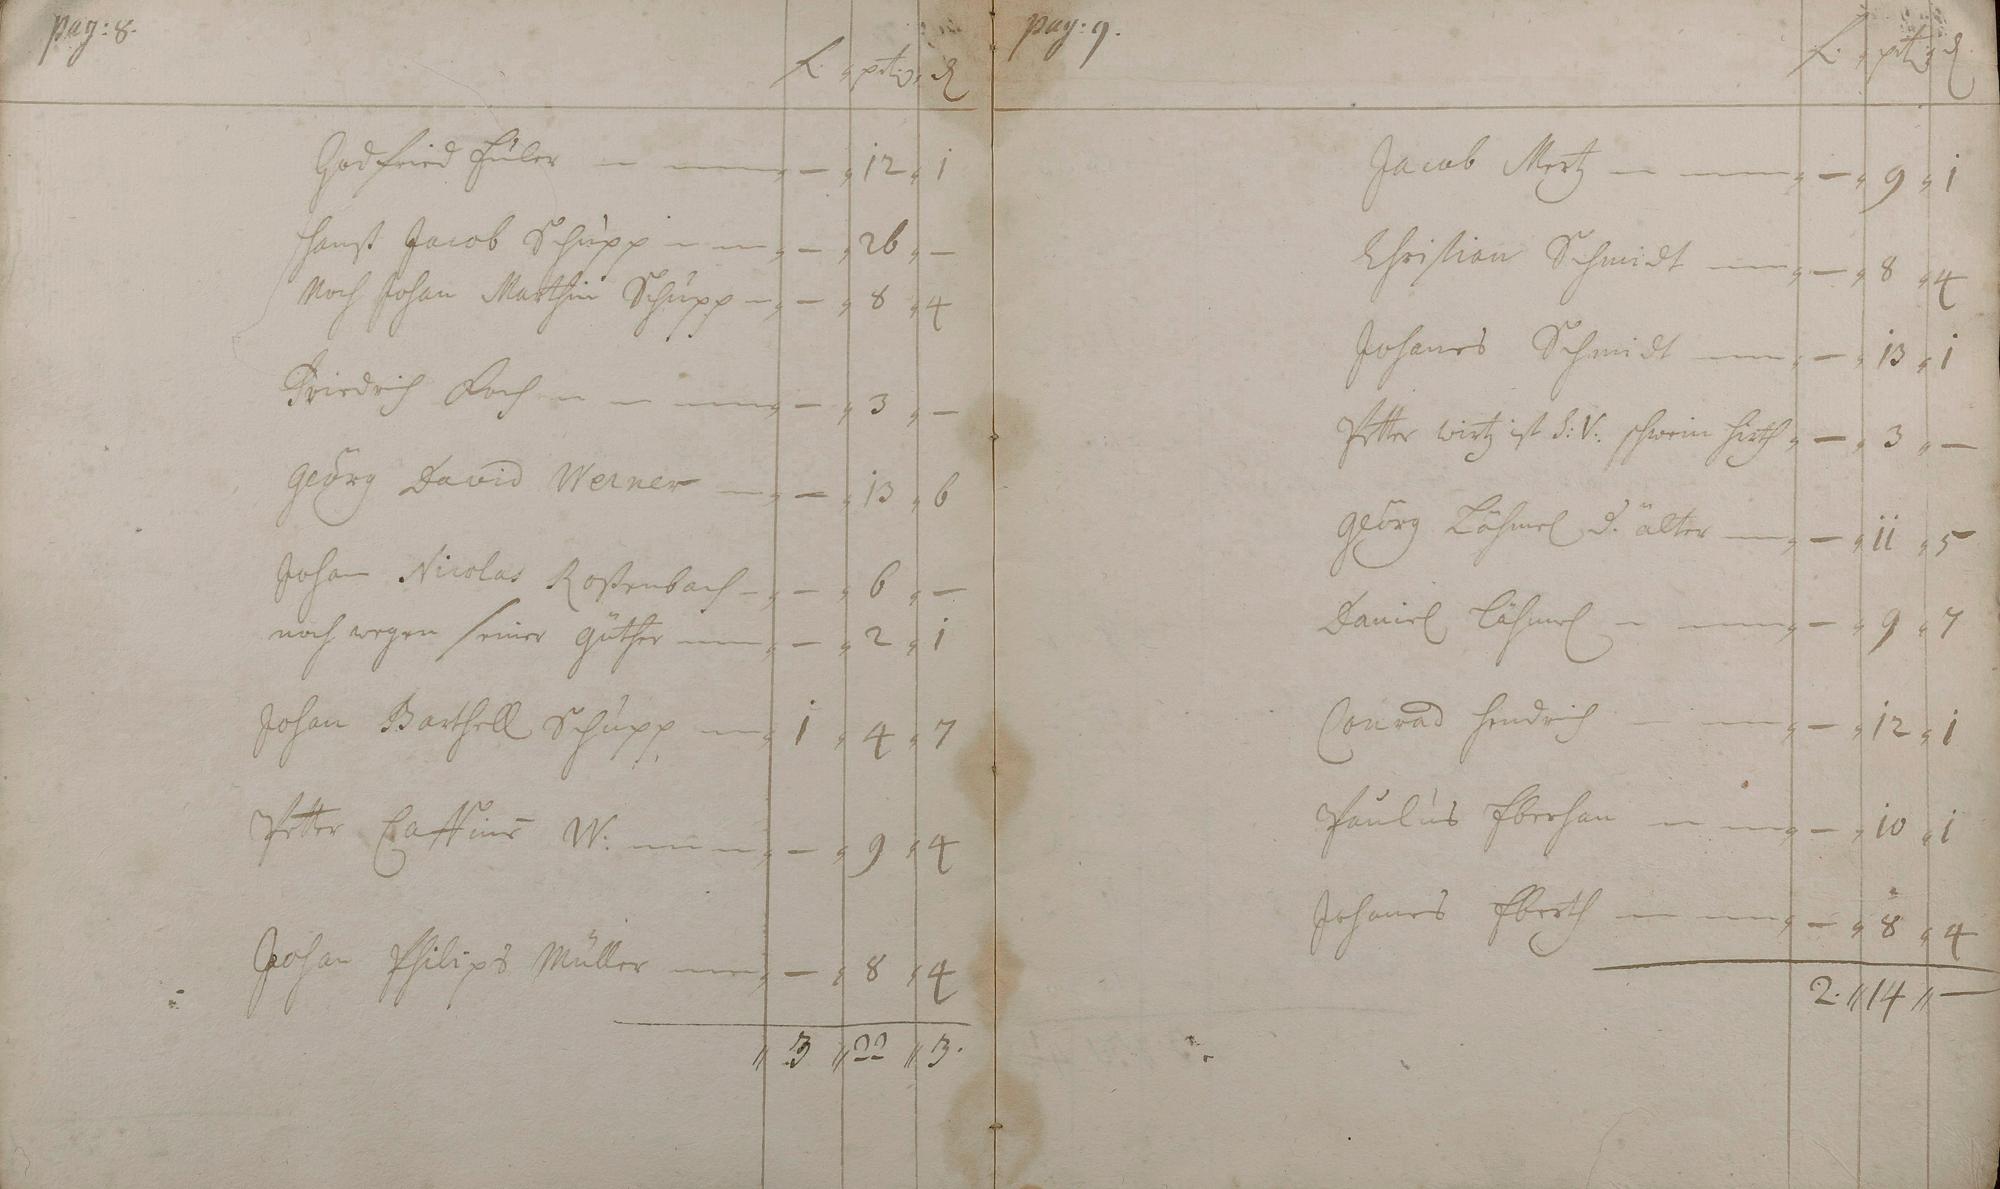 pag: 8.
fl. " ptz " d
Godfried Füler — — " — " 12 " 1
Hanß Jacob Schüpp — — " — " 26 " —
Noch Johan Marthin Schüpp — " — " 8 " 4
Friedrich Koch — — — " — " 3 " —
Georg David Werner — " — " 13 " 6
Johan Nicolas Roßenbach — " — " 6 " —
noch wegen seiner güther — " — " 2 " 1
Johan Barthell Schüpp — " 1 " 4 " 7
Petter W: — — " — " 9 " 4
Johan Philips Müller — " — " 8 " 4
" 3 " 22 " 3.
pag: 9.
fl. " ptz " d
Jacob Mertz — — " — " 9 " 1
Christian Schmidt — " — " 8 " 4
Johanes Schmidt — " — " 13 " 1
Petter wirtz ist S: V: schwein hirth " — " 3 " —
Georg Lähmel d. älter — " — " 11 " 5
Daniel Lähmel — — " — " 9 " 7
Conrad Hendrich — — " — " 12 " 1
Paulus Eberhan — — " — " 10 " 1
Johanes Eberth — — " — " 8 " 4
2. " 14 " —